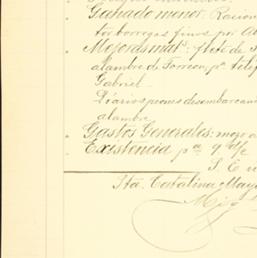 Ganado menor. Racion
tor borregas finos por A
Mejoras mat.s: flete de
alambre de Torreon, pa. telé
Gabriel.
Diarios peones desembarcan
alambre
Gastos Generales: mozo a
Existencia pa. q. de
S. E. u
Sta. Catalina May